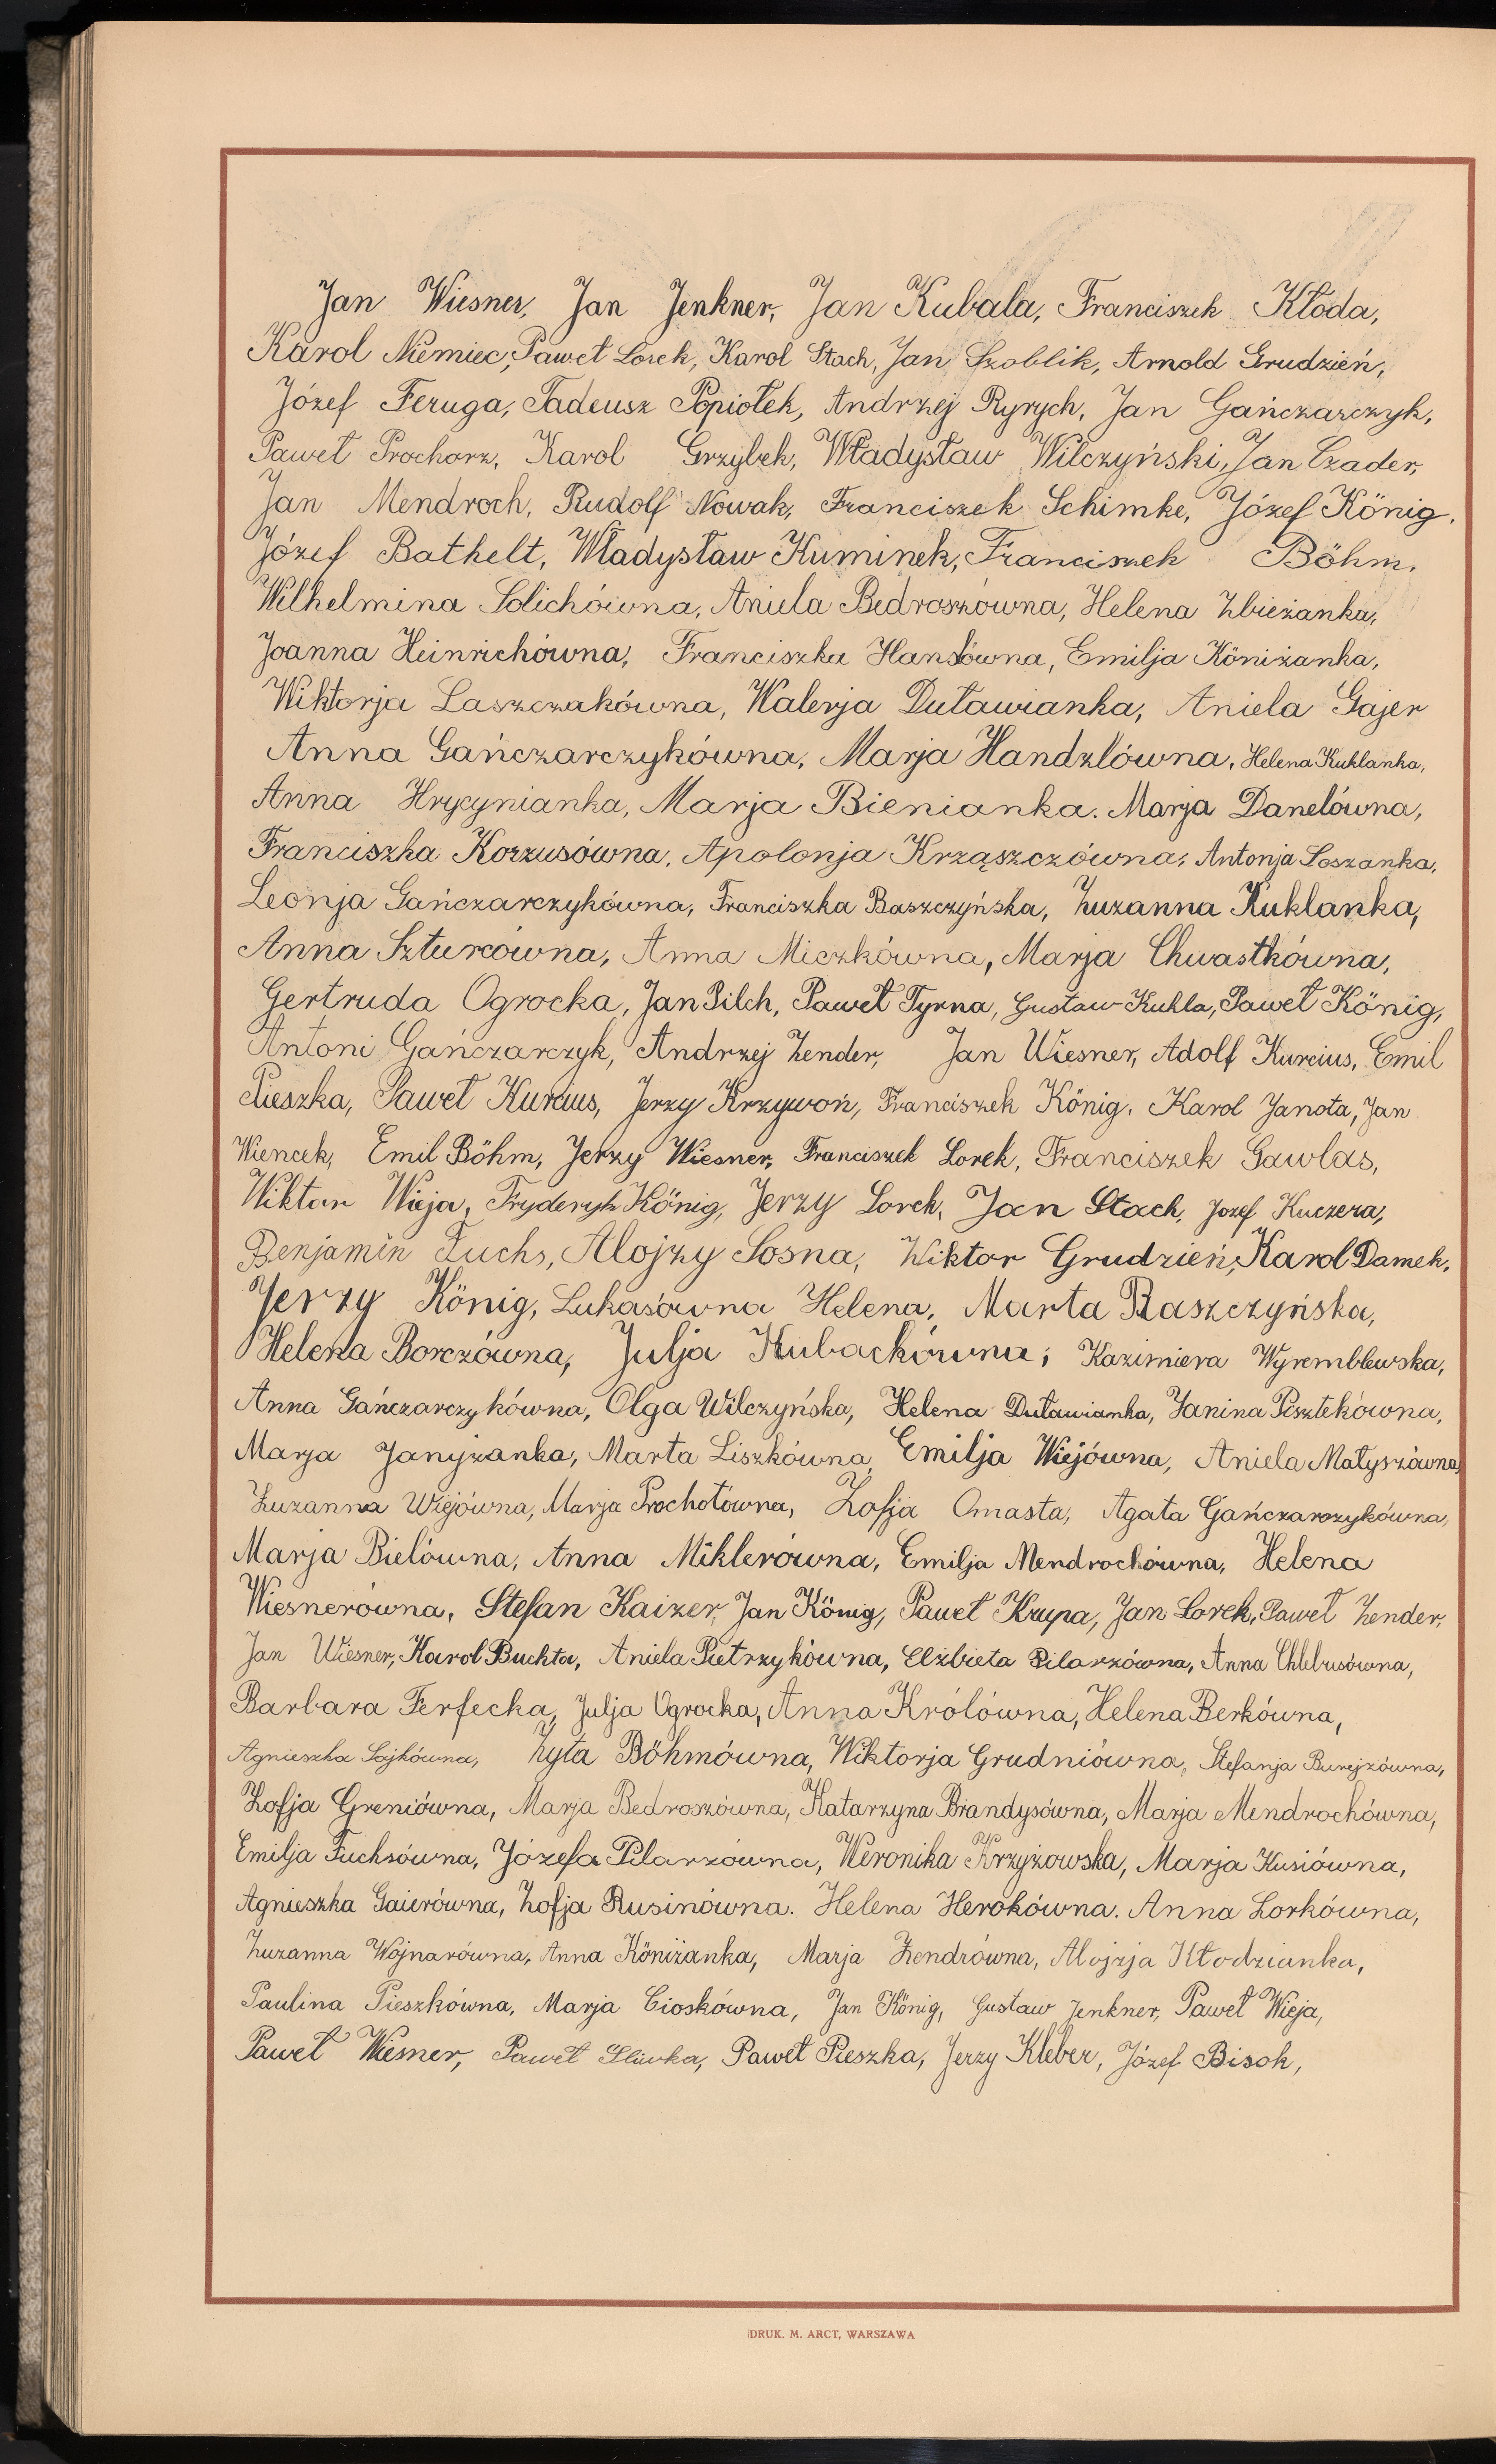 Jan Wiesner, Jan Jenkner, Jan Kubala, Franciszek Kłoda,
Karol Niemiec, Paweł Lorek, Karol Stach, Jan Szoblik, Arnold Grudzień,
Józef Feruga, Tadeusz Popiołek, Andrzej Ryrych, Jan Gańczarczyk,
Paweł Prochorz, Karol Grzybek, Władysław Wilczyński, Jan Czader,
Jan Mendroch, Rudolf Nowak, Franciszek Schimke, Józef König,
Józef Bathelt, Władysław Kuminek, Franciszek Böhm,
Wilhelmina Solichówna, Aniela Bedroszówna, Helena Zbieżanka,
Joanna Heinrichówna, Franciszka Hanslówna, Emilja Köniżanka,
Wiktorja Laszczakówna, Walerja Duławianka, Aniela Gajer
Anna Gańczarczykówna, Marja Handzlówna, Helena Kuklanka,
Anna Hrycynianka, Marja Bienianka. Marja Danelówna,
Franciszka Korzusówna, Apolonja Krząszczówna, Antonja Łoszanka,
Leonja Gańczarczykówna, Franciszka Baszczyńska, Zuzanna Kuklanka,
Anna Szturcówna, Anna Miczkówna, Marja Chwastkówna,
Gertruda Ogrocka, Jan Pilch, Paweł Tyrna, Gustaw Kukla, Paweł König,
Antoni Gańczarczyk, Andrzej Zender, Jan Wiesner, Adolf Kurcius, Emil
Pieszka, Paweł Kurcius, Jerzy Krzywoń, Franciszek König, Karol Janota, Jan
Wiencek, Emil Böhm, Jerzy Wiesner, Franciszek Lorek, Franciszek Gawlas,
Wiktor Wieja, Fryderyk König, Jerzy Lorek, Jan Stach, Józef Kuczera,
Benjamin Fuchs, Alojzy Sosna, Wiktor Grudzień, Karol Damek,
Jerzy König, Lukasówna Helena, Marta Baszczyńska,
Helena Borczówna, Julja Kubackówna, Kazimiera Wyremblewska,
Anna Gańczarczykówna, Olga Wilczyńska, Helena Duławianka, Janina Pisztekówna,
Marja Janyżanka, Marta Liszkówna, Emilja Wiejówna, Aniela Matyszówna,
Zuzanna Wiejówna, Marja Prochotówna, Zofja Omasta, Agata Gańczarczykówna,
Marja Bielówna, Anna Miklerówna, Emilja Mendrochówna, Helena
Wiesnerówna, Stefan Kaizer, Jan König, Paweł Krupa, Jan Lorek, Paweł Zender,
Jan Wiesner, Karol Buchta, Aniela Pietrzykówna, Elżbieta Pilarzówna, Anna Chlebusówna,
Barbara Ferfecka, Julja Ogrocka, Anna Królówna, Helena Berkówna,
Agnieszka Sojkówna, Zyta Böhmówna, Wiktorja Grudniówna, Stefanja Burejzówna,
Zofja Greniówna, Marja Bedroszówna, Katarzyna Brandysówna, Marja Mendrochówna,
Emilja Fuchsówna, Józefa Pilarzówna, Weronika Krzyżowska, Marja Kusiówna,
Agnieszka Gaierówna, Zofja Rusinówna. Helena Herokówna. Anna Lorkówna,
Zuzanna Wojnarówna, Anna Köniżanka, Marja Zendrówna, Alojzja Kłodzianka,
Paulina Pieszkówna, Marja Cioskówna, Jan König, Gustaw Jenkner, Paweł Wieja,
Paweł Wiesner, Paweł Śliwka, Paweł Pieszka, Jerzy Kleber, Józef Bisok,
DRUK. M. ARCT, WARSZAWA